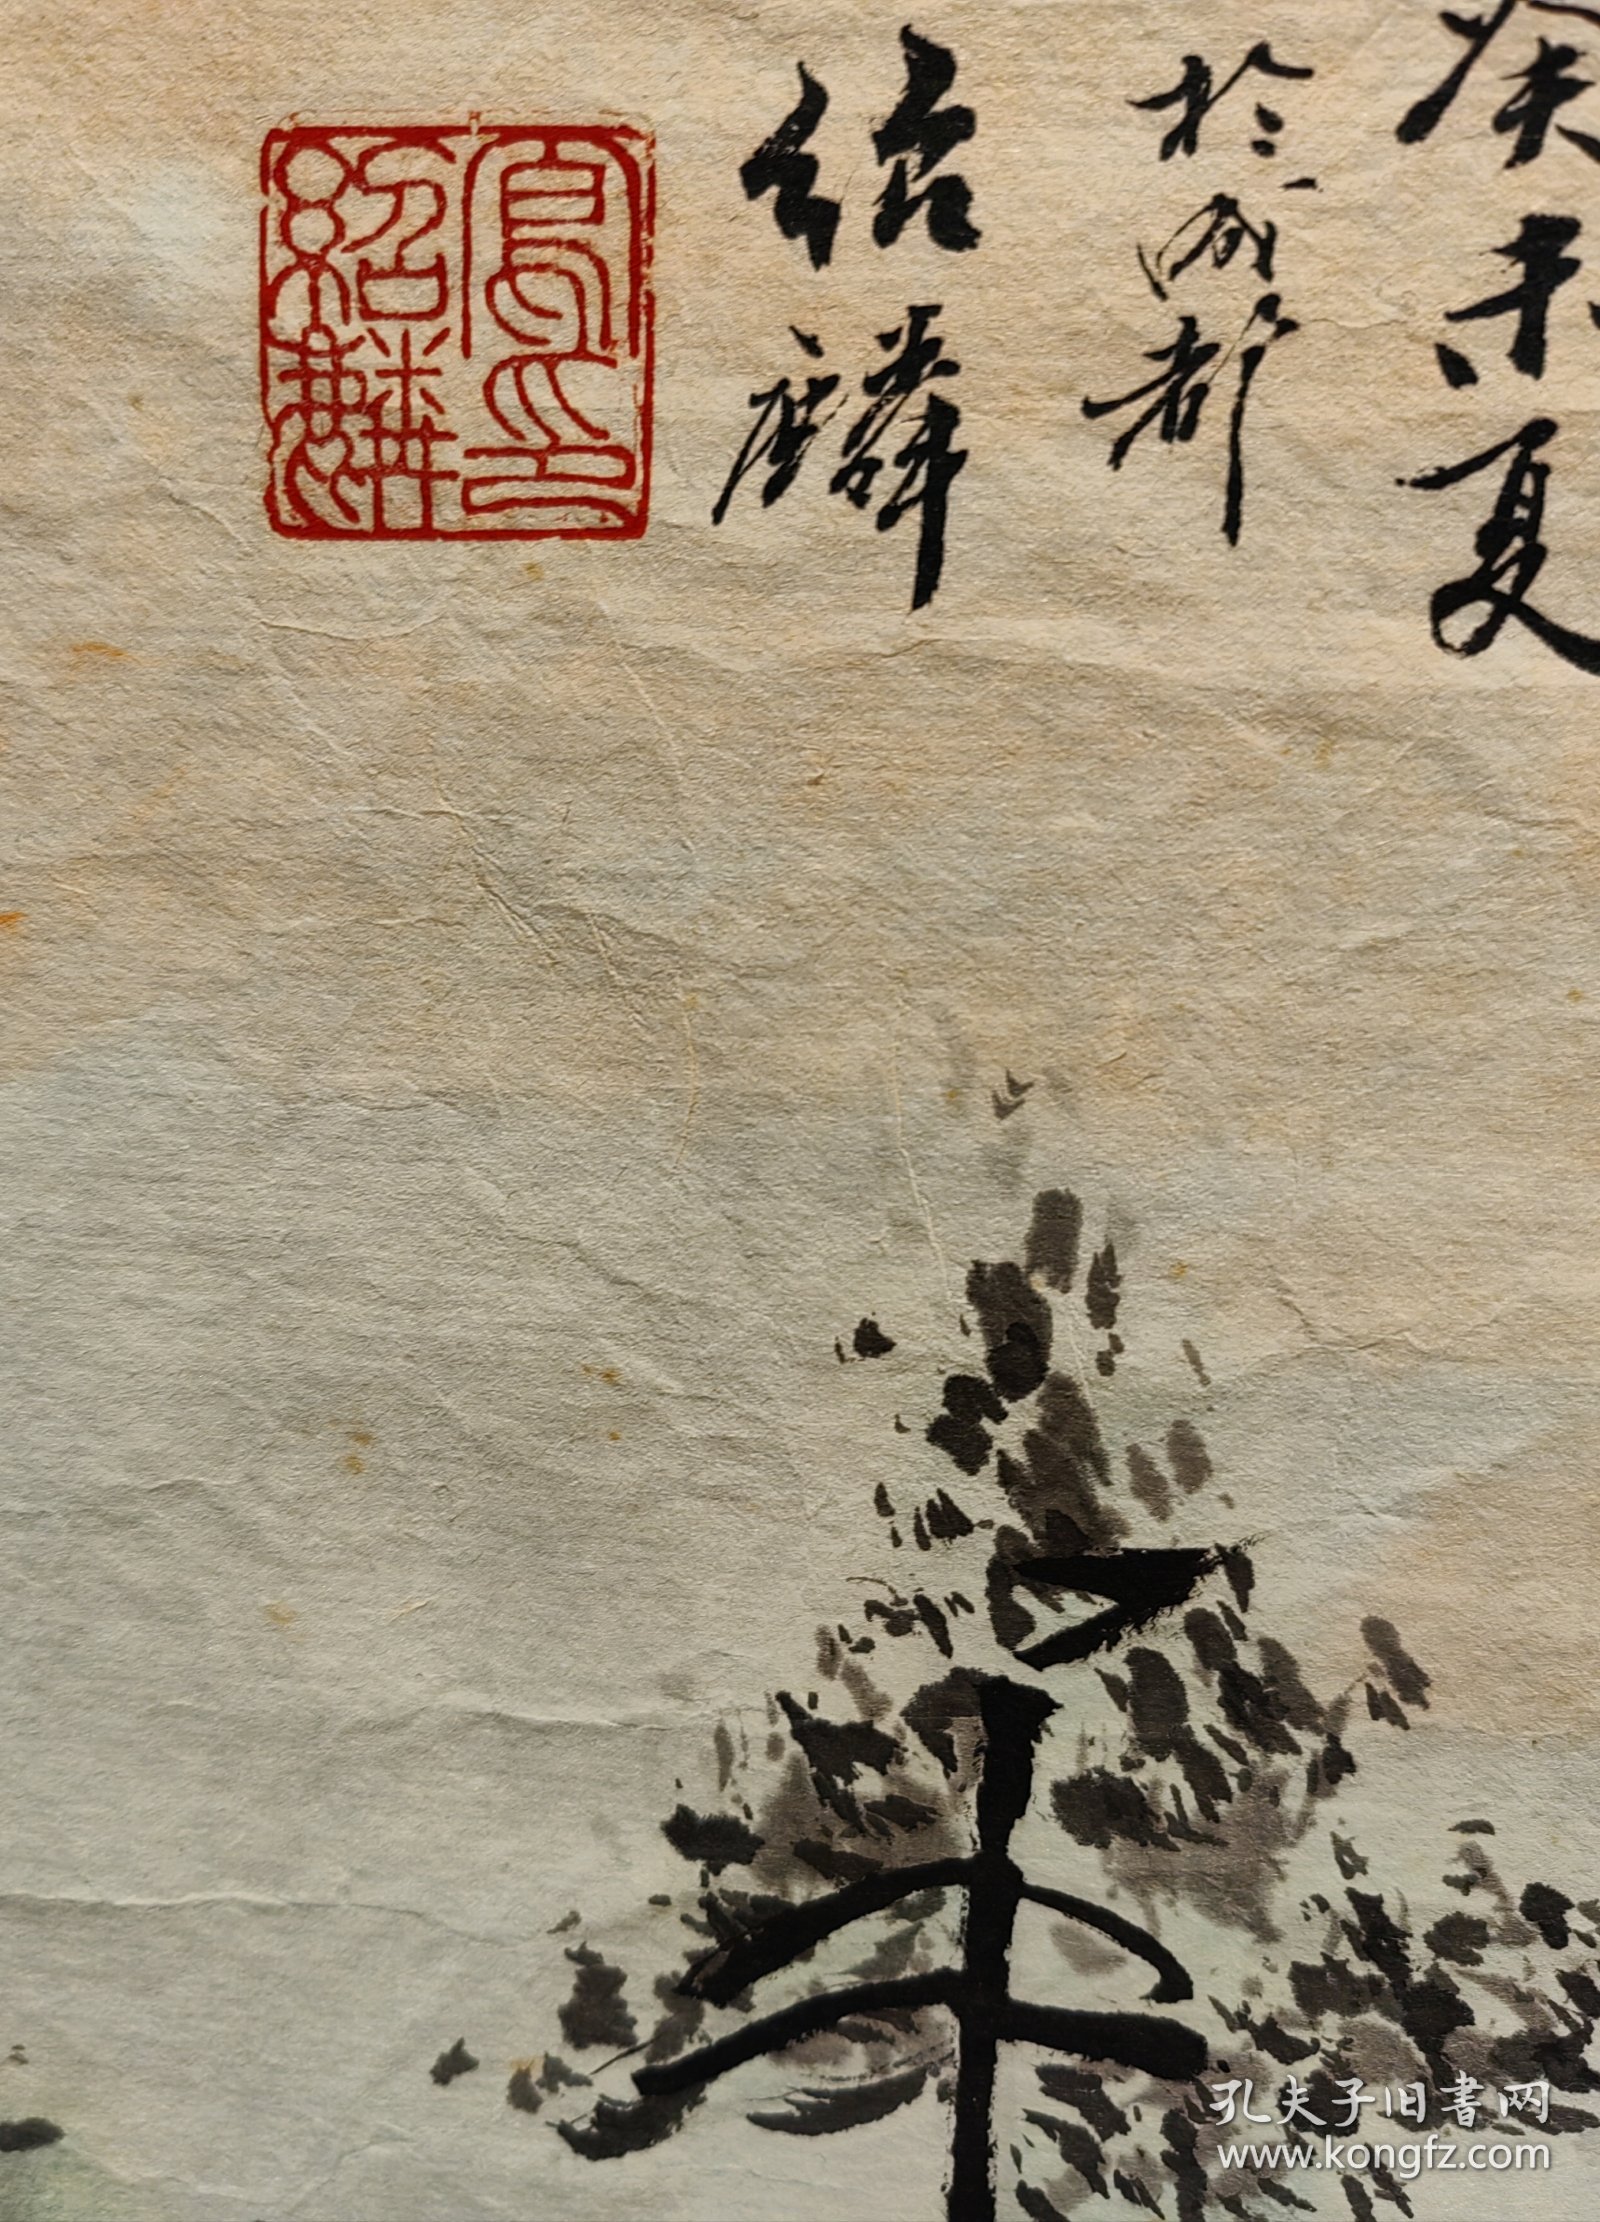 癸未夏
於成都
绍麟
印
紹麟
孔夫子旧書网
www.kongfz.com